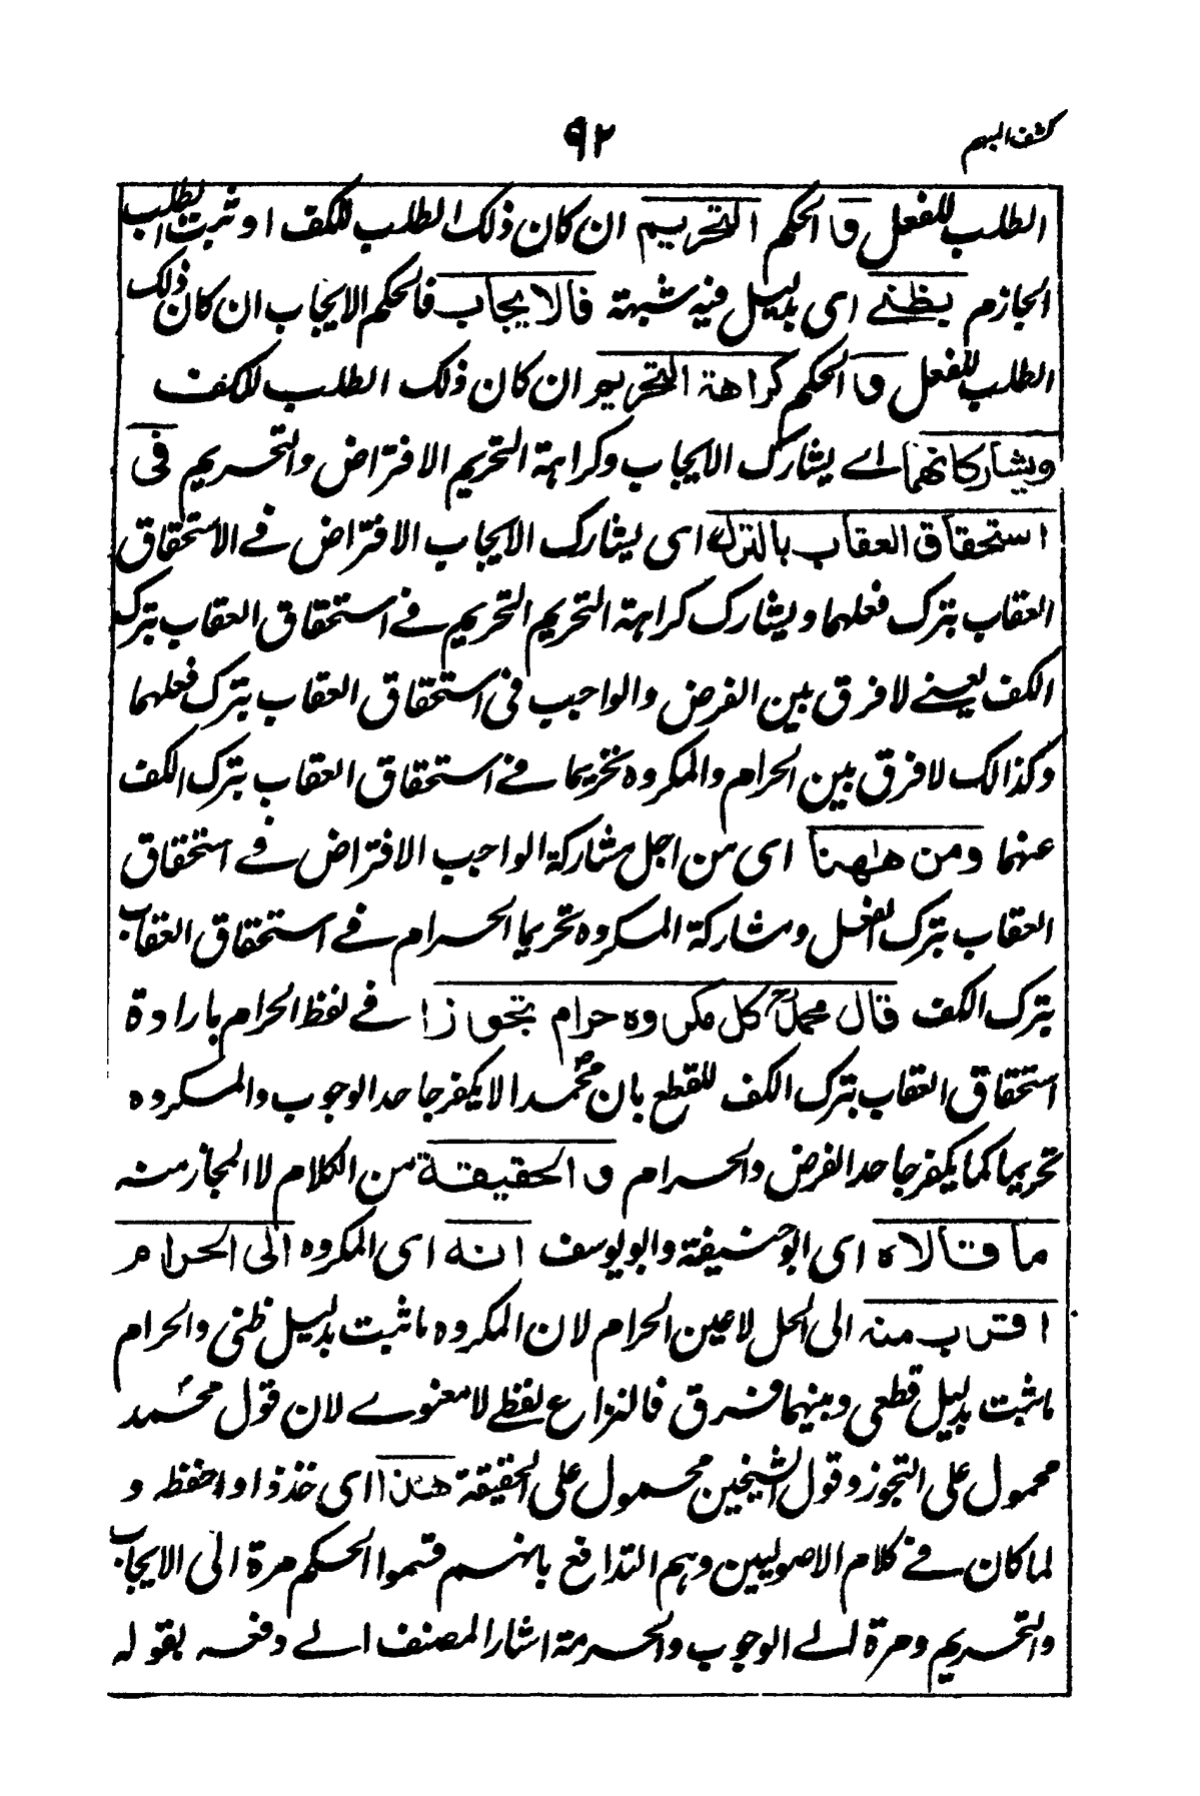 كشف المبهم
٩٢
الطلب للفعل و الحكم التحريم ان كان ذلك الطلب للكف او ثبت الطلب
الجازم بظني اى بدليل فيه شبهة فالايجاب فالحكم الايجاب ان كان ذلك
الطلب للفعل و الحكم كراهة التحريم ان كان ذلك الطلب للكف
ويشاركانهما اے يشارك الايجاب وكراهة التحريم الافتراض والتحريم فى
استحقاق العقاب بالترك اى يشارك الايجاب الافتراض فے الاستحقاق
العقاب بترك فعلهما ويشارك كراهة التحريم التحريم فے استحقاق العقاب بترك
الكف يعنے لا فرق بين الفرض والواجب فى استحقاق العقاب بترك فعلهما
وكذالك لا فرق بين الحرام والمكروه تحريما فے استحقاق العقاب بترك الكف
عنهما ومن ههنا اى من اجل مشاركة الواجب الافتراض فے استحقاق
العقاب بترك الفعل ومشاركة المكروه تحريما الحرام فے استحقاق العقاب
بترك الكف قال محمد كل مكروه حرام تجوزا فے لفظ الحرام بارادة
استحقاق العقاب بترك الكف للقطع بان محمدا لا يكفر جاحد الوجوب والمكروه
تحريما كما يكفر جاحد الفرض والحرام و الحقيقة من الكلام لا المجاز منه
ما قالاه اى ابو حنيفة وابو يوسف انه اى المكروه الى الحرام
اقرب منه الى الحل لا عين الحرام لان المكروه ما ثبت بدليل ظنى والحرام
ما ثبت بدليل قطعى وبينهما فرق فالنزاع لفظے لا معنوے لان قول محمد
محمول على التجوز وقول الشيخين محمول على الحقيقة هذا اى خذ ذا واحفظه و
لما كان فے كلام الاصوليين وهم التدافع بانهم قسموا الحكم مرة الى الايجاب
والتحريم ومرة الے الوجوب والحرمة اشار المصنف الے دفعه بقوله